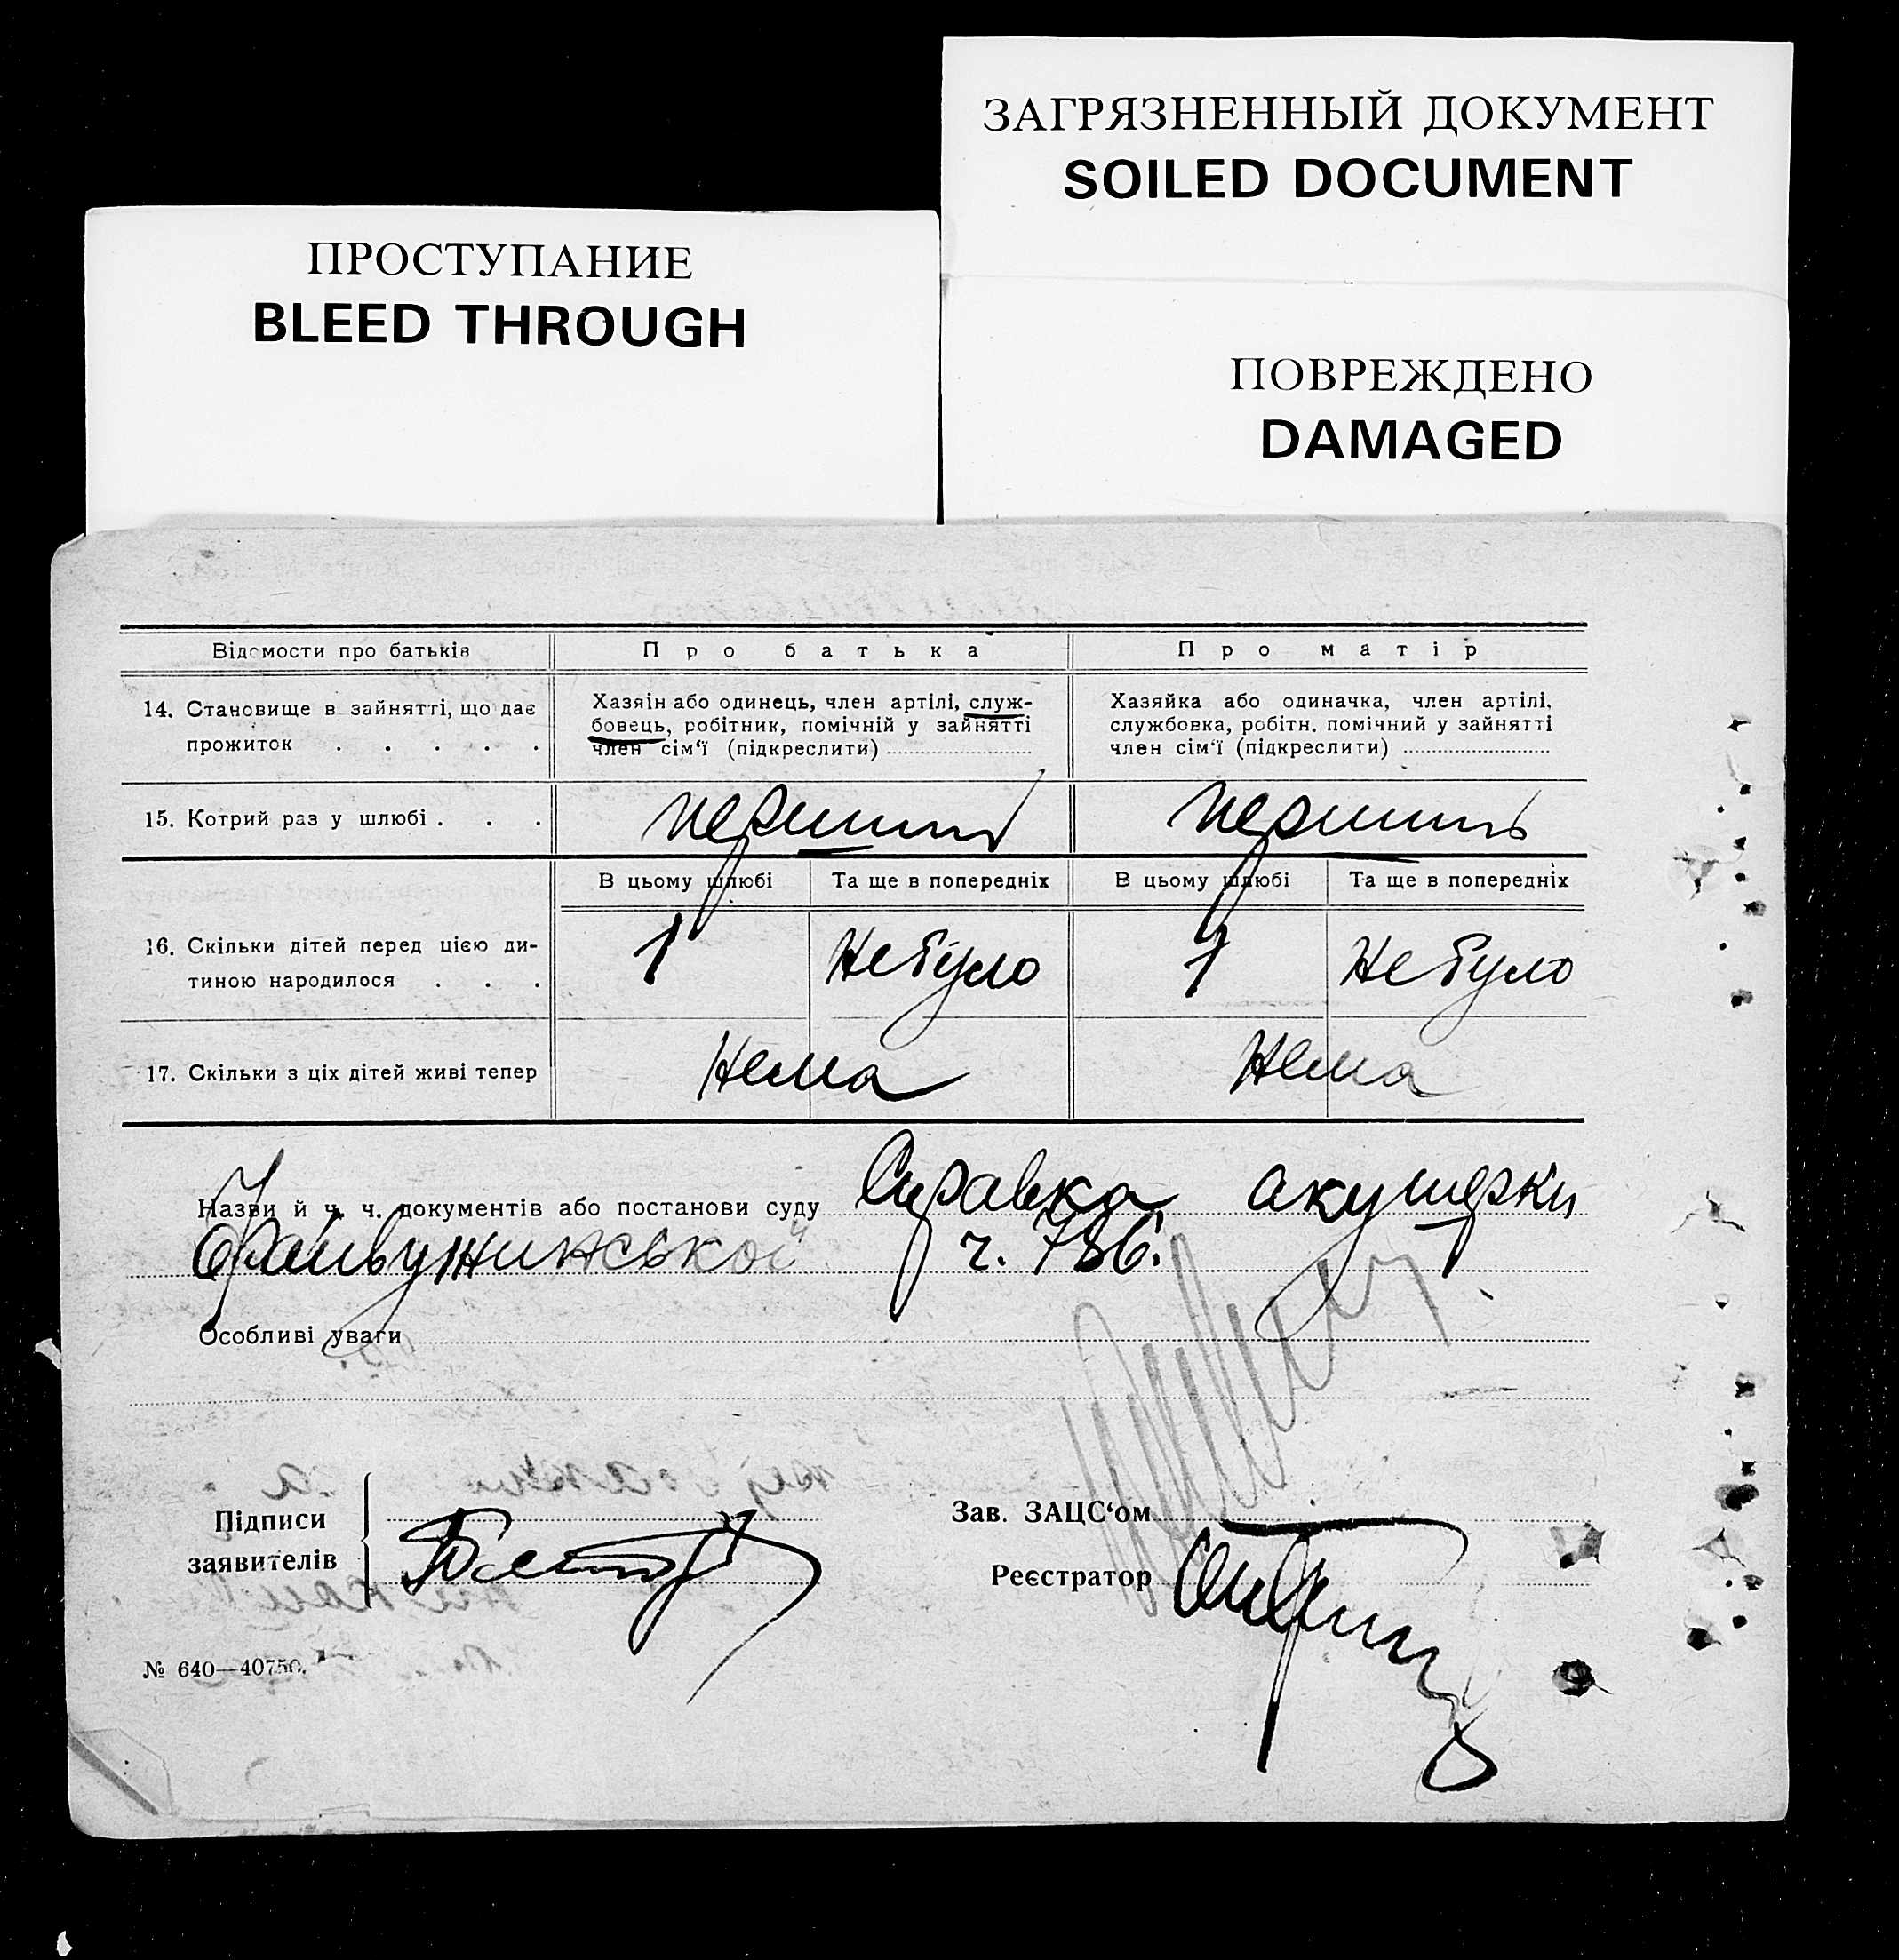 ЗАГРЯЗНЕННЫЙ ДОКУМЕНТ
SOILED DOCUMENT
ПРОСТУПАНИЕ
BLEED THROUGH
ПОВРЕЖДЕНО
DAMAGED
Відомости про батьків
Про батька
Про матір
14. Становище в зайнятті, що дає
прожиток . . . . .
Хазяїн або одинець, член артілі, служ-
бовець, робітник, помічній у зайнятті
член сім'ї (підкреслити)
Хазяйка або одиначка, член артілі,
службовка, робітн. помічний у зайнятті
член сім'ї (підкреслити)
15. Котрий раз у шлюбі . . .
перший
перший
В цьому шлюбі
Та ще в попередніх
В цьому шлюбі
Та ще в попередніх
16. Скільки дітей перед цією ди-
тиною народилося . . .
1
Не було
1
Не було
17. Скільки з ціх дітей живі тепер
Нема
Нема
Назви й ч. ч. документів або постанови суду Справка акушерки
ч. 786.
Особливі уваги
Підписи
заявителів
Зав. ЗАЦС'ом
Реєстратор
№ 640—40750.